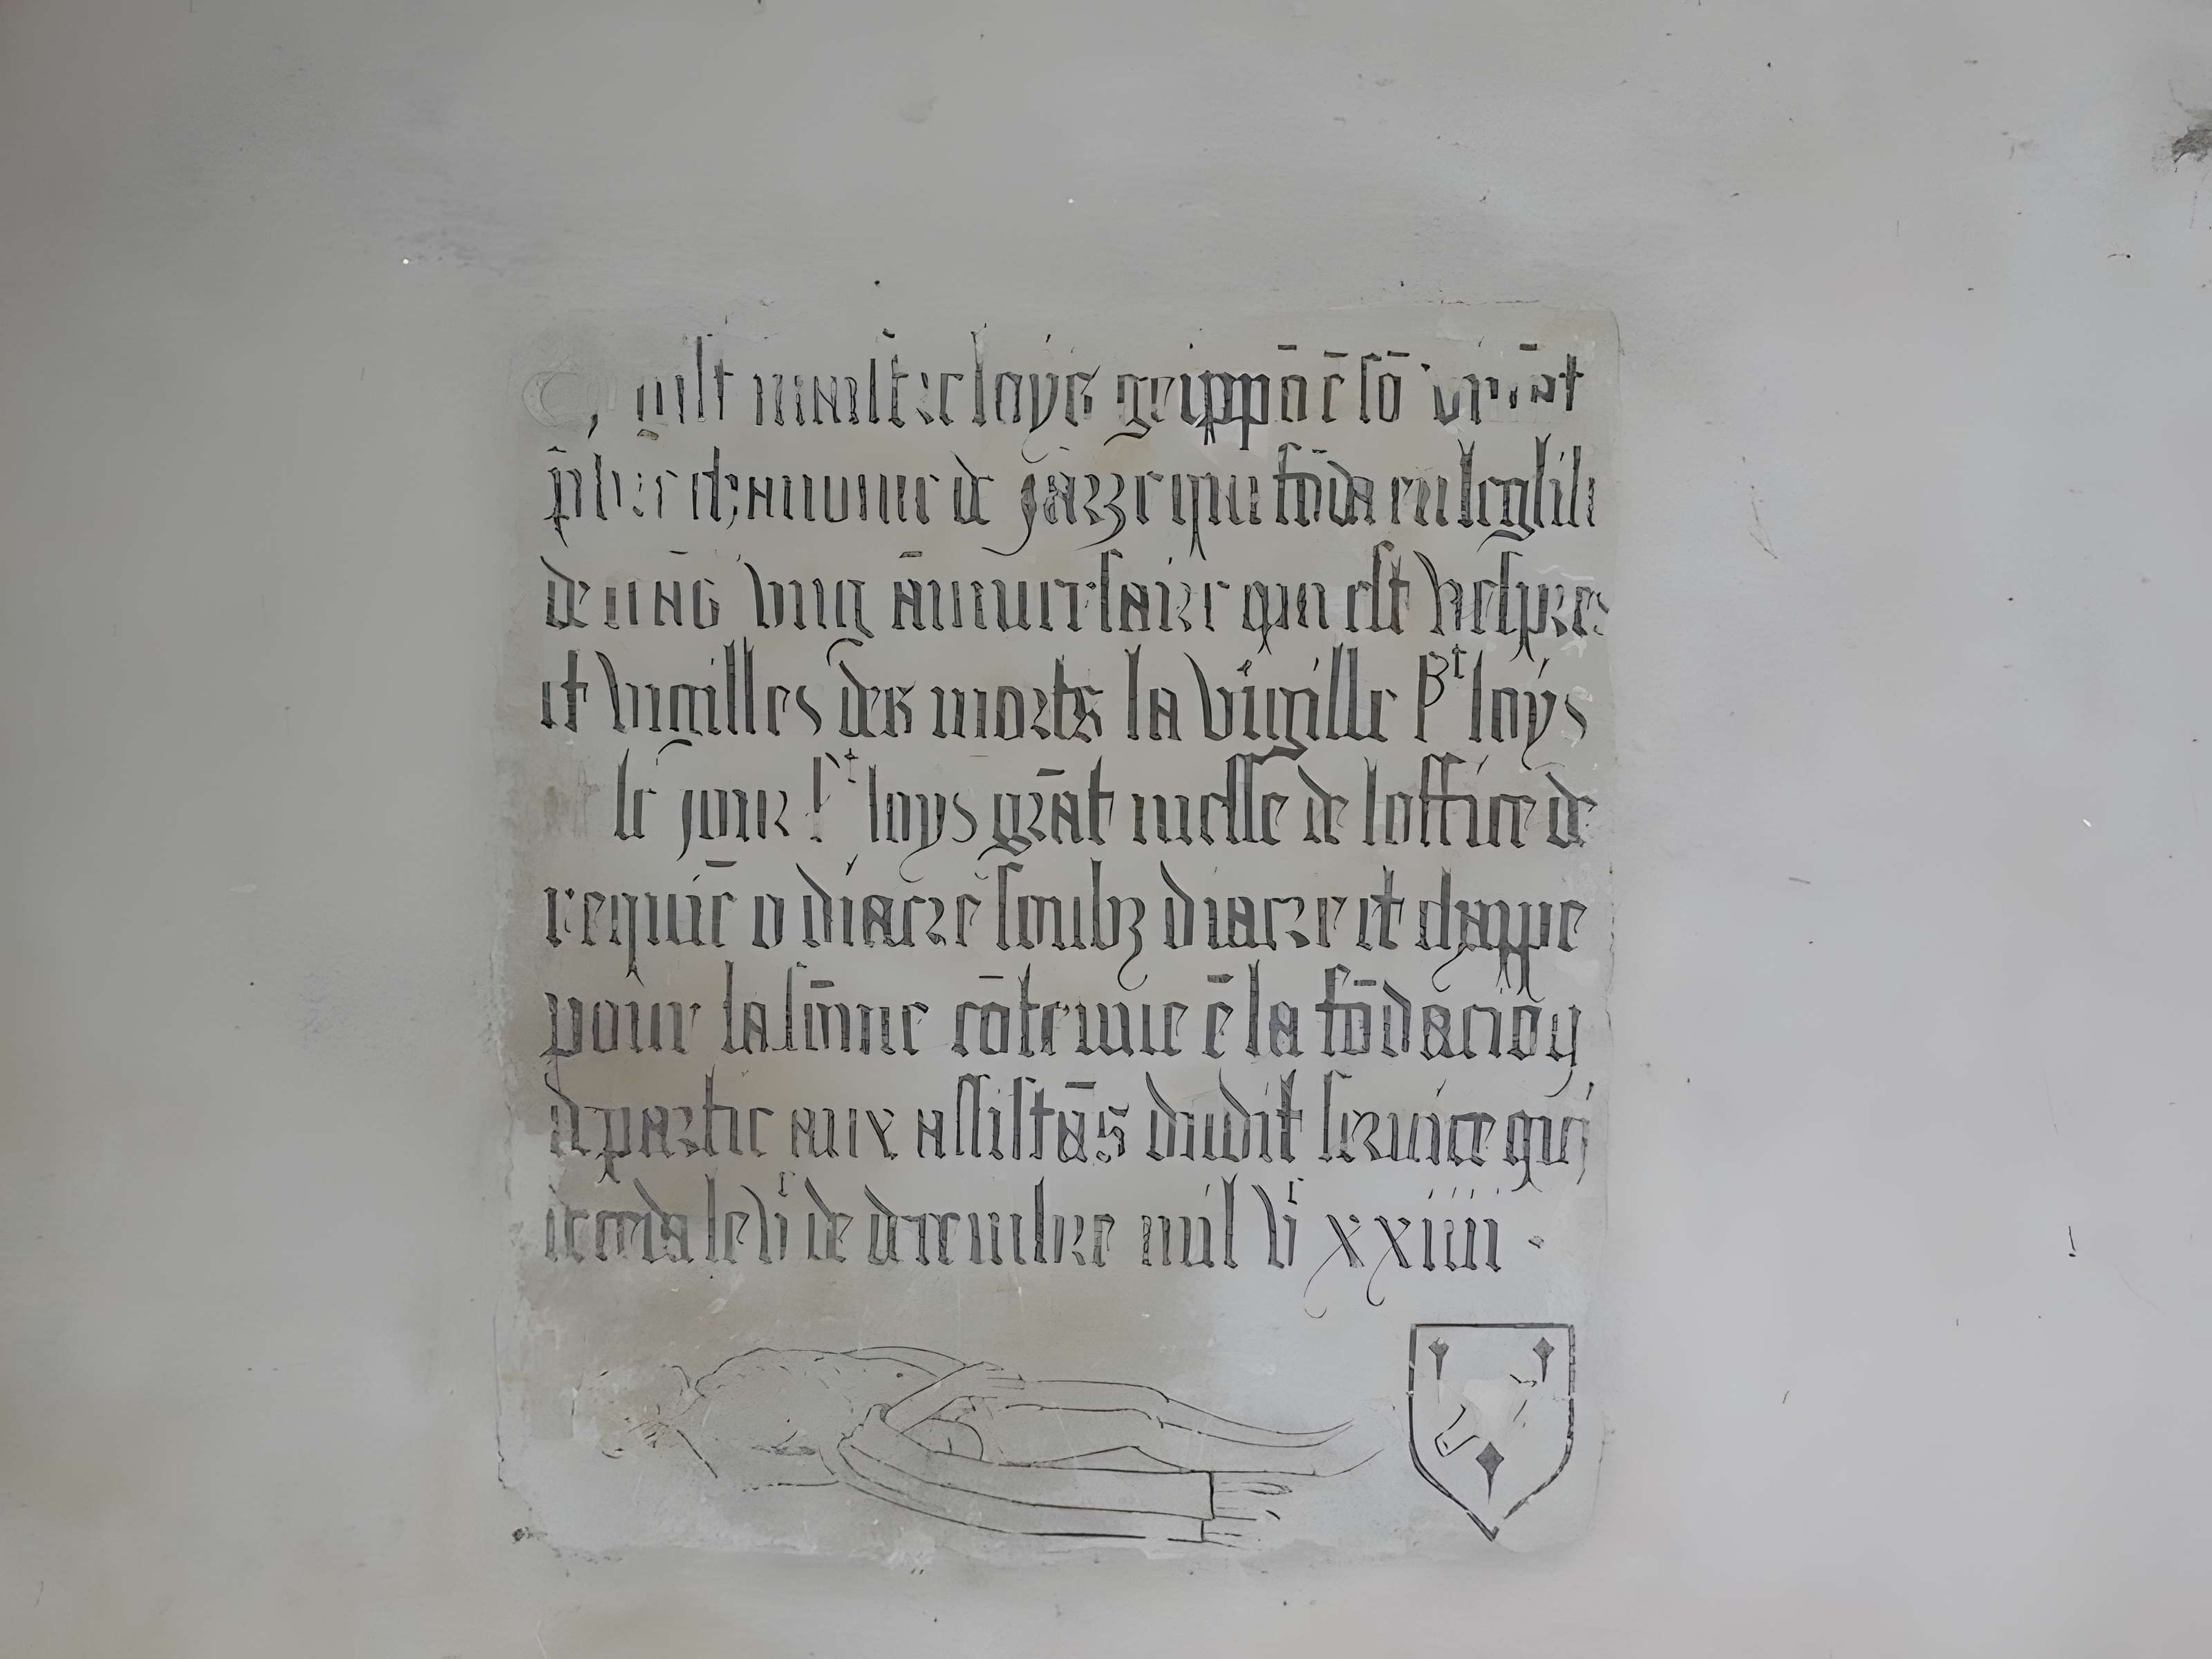 Cy gist maistre loys grippō ē sō viuāt
p̄bre chanoine de jarze qui fōda en leglise
de ceās vng āniuersaire qui est vespres
et vigilles des morts la vigille st loys
le jour st loys grāt messe de loffice de
requiē o diacre soubz diacre et chappe
pour la sōme cōtenue ē la fōdacion
departie aux assistās dudit seruice qui
deceda le vi de decembre mil vc xxiiii .